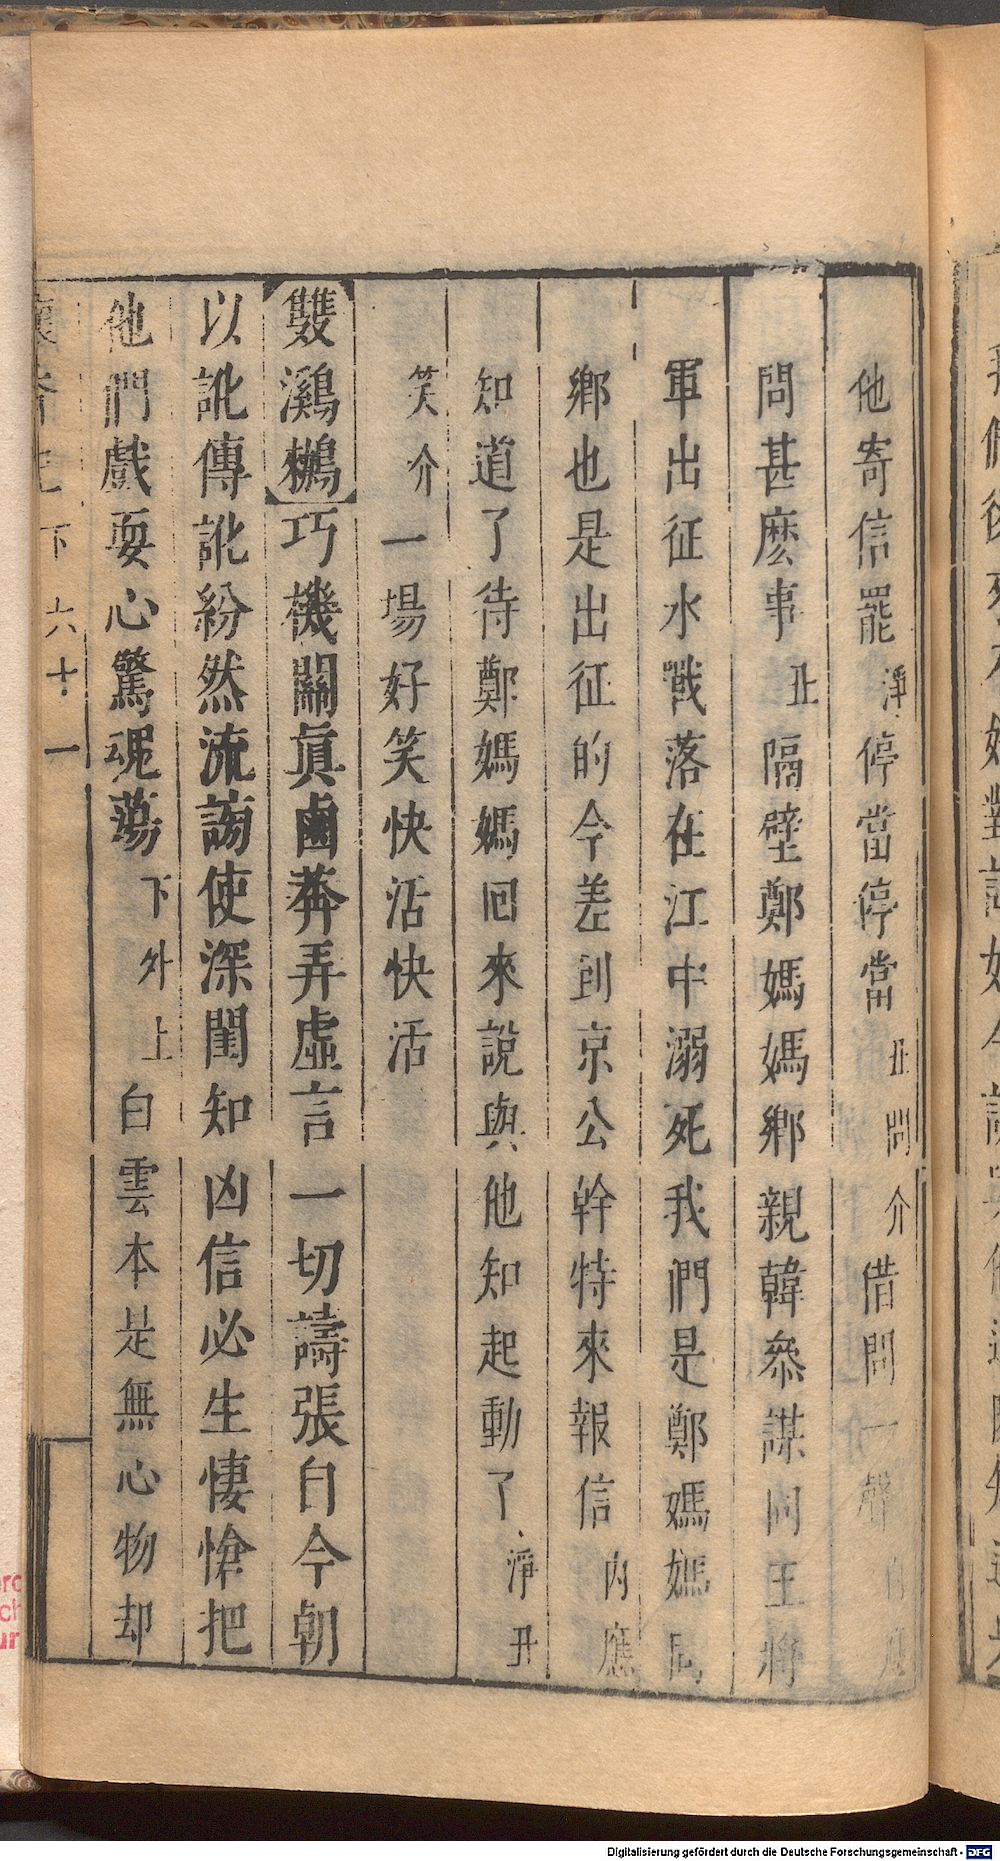 他寄信罷淨停當停當丑問介借問一聲內應
問甚麽事丑隔壁鄭媽媽鄉親韓叅謀同王將
軍出征水戰落在江中溺死我們是鄭媽媽同
鄉也是出征的今差到京公幹特來報信內應
知道了待鄭媽媽回來說與他知起動了淨丑
笑介一場好笑快活快活
雙鸂𪆟巧機關眞鹵莽弄虛言一切譸張白今朝
以訛傳訛紛然流謗使深閨知凶信必生悽愴把
他們戲耍心驚魂蕩下外上白雲本是無心物却
懷香記下六十一
Digitalisierung gefördert durch die Deutsche Forschungsgemeinschaft - DFG